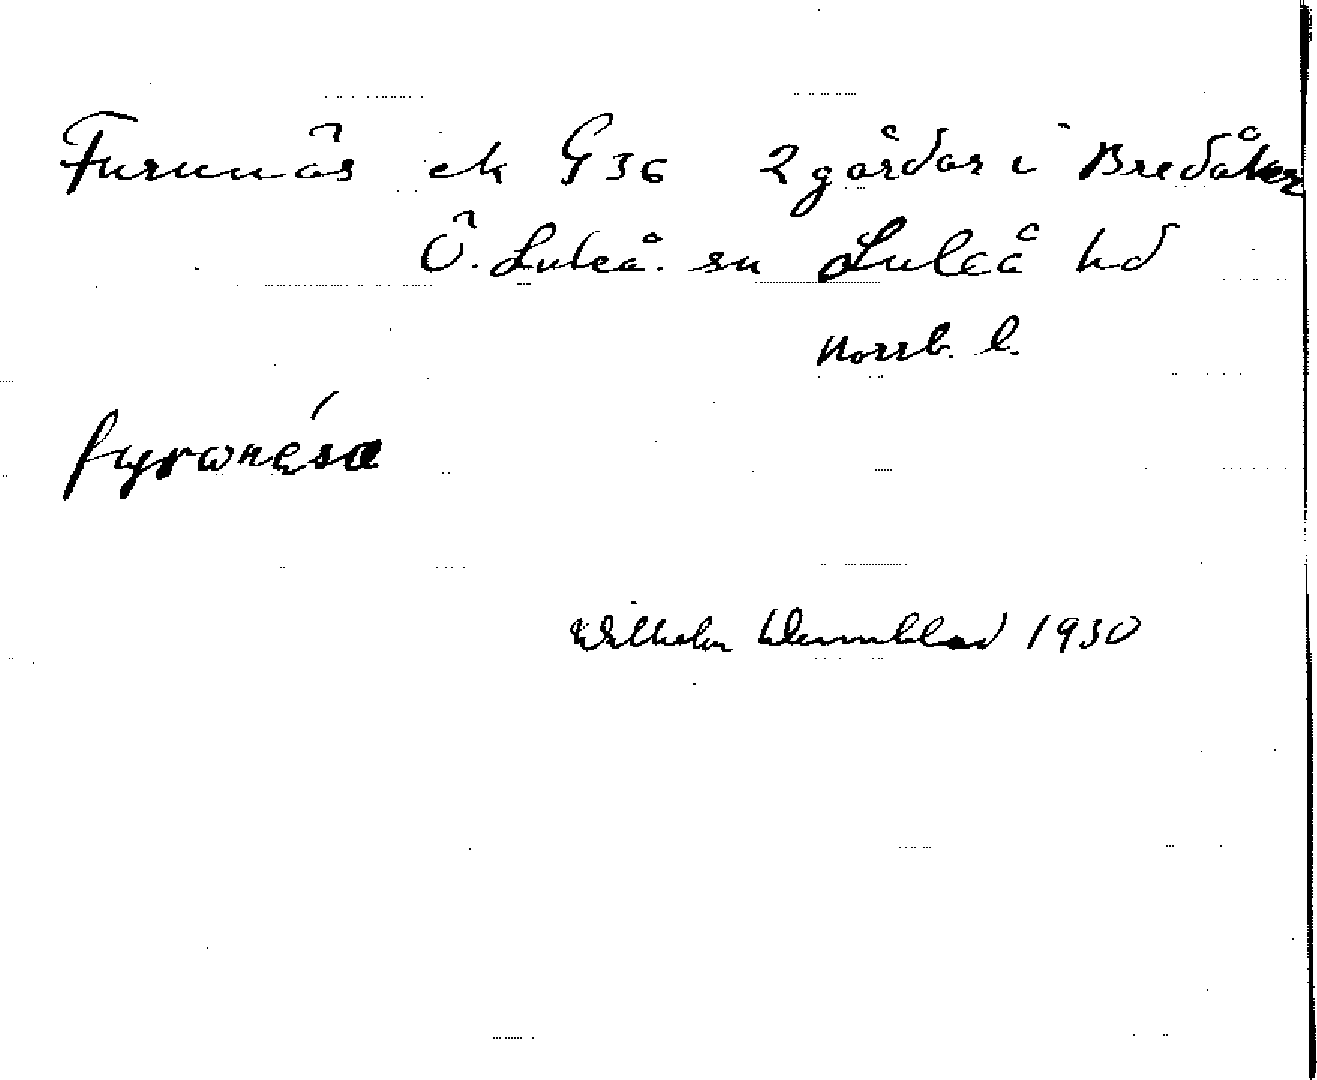 Furunäs ek G36 2 gårdar i Bredåker
Ö. Luleå. sn Luleå hd
Norrb. l.
fyrωnẹ́sa
Wilhelm Wennblad 1930